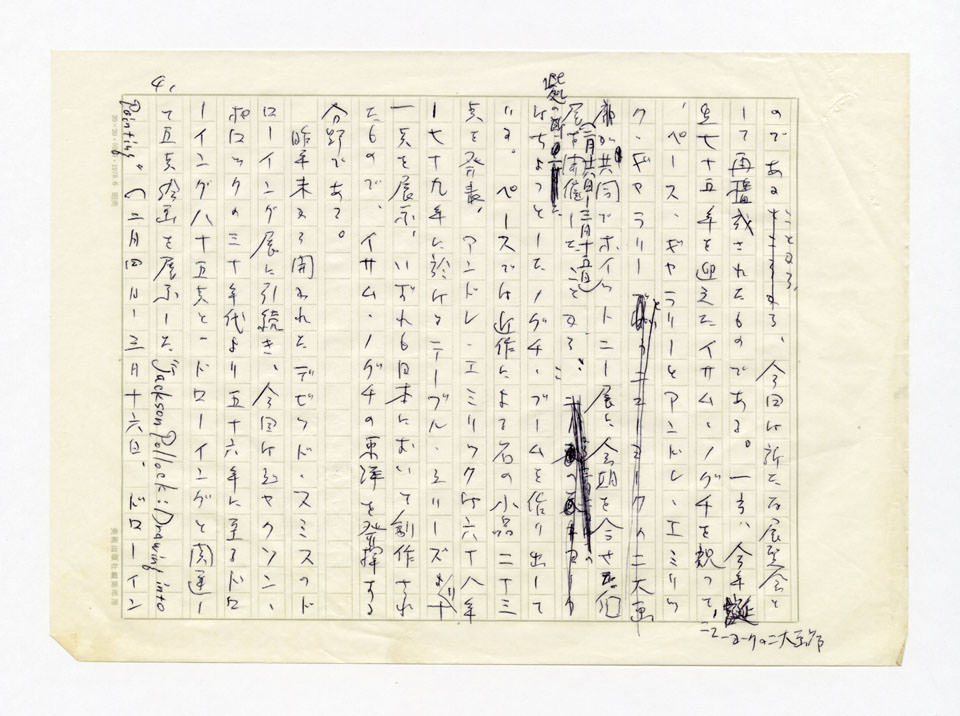 のであることになる、今回は新たな展覧会と
して再構成されたものである。一方、今年誕
生七十五年を迎えたイサム・ノグチを祝って、ニューヨークの二大画廊
ペース・ギャラリーとアンドレ・エミリッ
ク・ギャラリー
が共同でホイットニー展に会期を合せ個
展を開催した(二月廿六日―三月十五日)
はちょっとしたノグチ・ブームを作り出して
いる。ペースでは近作による石の小品二十三
点を発表、アンドレ・エミリックは六十八年
―七十九年に於けるテーブル・シリーズより十
一点を展示、いずれも日本において創作され
たもので、イサム・ノグチの東洋を発揮する
分野である。
昨年末に開かれたデビッド・スミスのド
ローイング展に引続き、今回はジャクソン・
ポロックの三十年代より五十六年に至るドロ
ーイング八十五点と、ドローイングと関連し
て五点絵画を展示した"Jackson Pollock: Drawing into
Painting"(二月四日―三月十六日、ドローイン
4,
20×20 1978.6
美術出版社編集部用